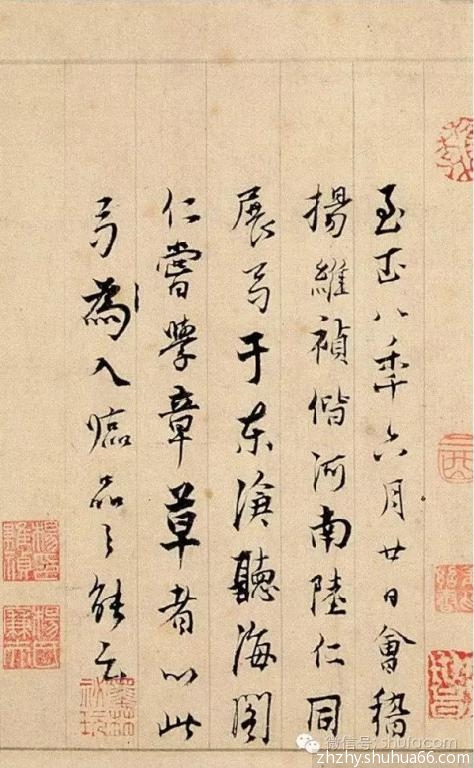 至正八年六月廿日會稽
楊維禎偕河南陸仁同
展弓于東滄聽海閣
仁嘗學章草者以此
弓為入臨品之能云
微信号: shufacom
zhzhy.shuhua66.com